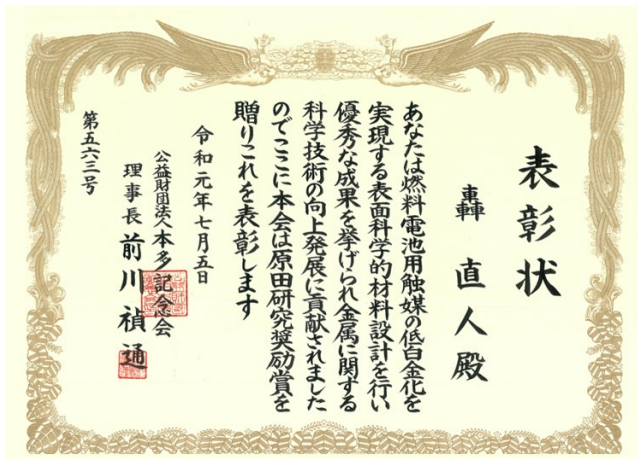 表彰状
轟 直人殿
あなたは燃料電池用触媒の低白金化を
実現する表面科学的材料設計を行い
優秀な成果を挙げられ金属に関する
科学技術の向上発展に貢献されました
のでここに本会は原田研究奨励賞を
贈りこれを表彰します
令和元年七月五日
公益財団法人本多記念会
理事長 前川禎通
第五六三号